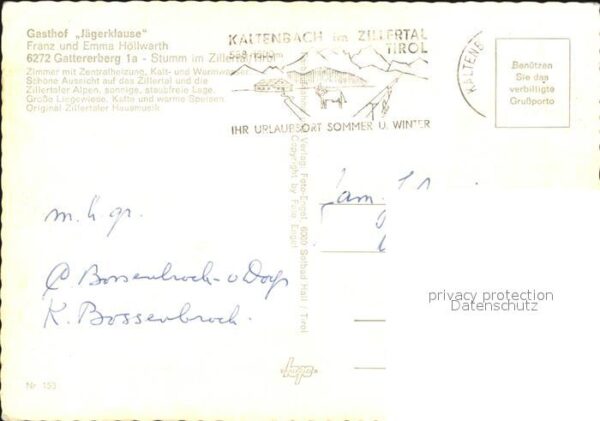 Gasthof „Jägerklause"
Franz und Emma Höllwarth
6272 Gattererberg 1a - Stumm im Zillertal/Tirol
Zimmer mit Zentralheizung, Kalt- und Warmwasser
Schöne Aussicht auf das Zillertal und die
Zillertaler Alpen, sonnige, staubfreie Lage.
Große Liegewiese. Kalte und warme Speisen.
Original Zillertaler Hausmusik
KALTENBACH im ZILLERTAL
TIROL
558-1800m
IHR URLAUBSORT SOMMER U. WINTER
KALTENB
Benützen
Sie das
verbilligte
Grußporto
Verlag: Foto-Engel, 6060 Solbad Hall / Tirol
Copyright by Foto Engel
Fam.
m. h. gr.
C. Bossenbroek-v Dorp
K. Bossenbroek.
privacy protection
Datenschutz
Nr 153